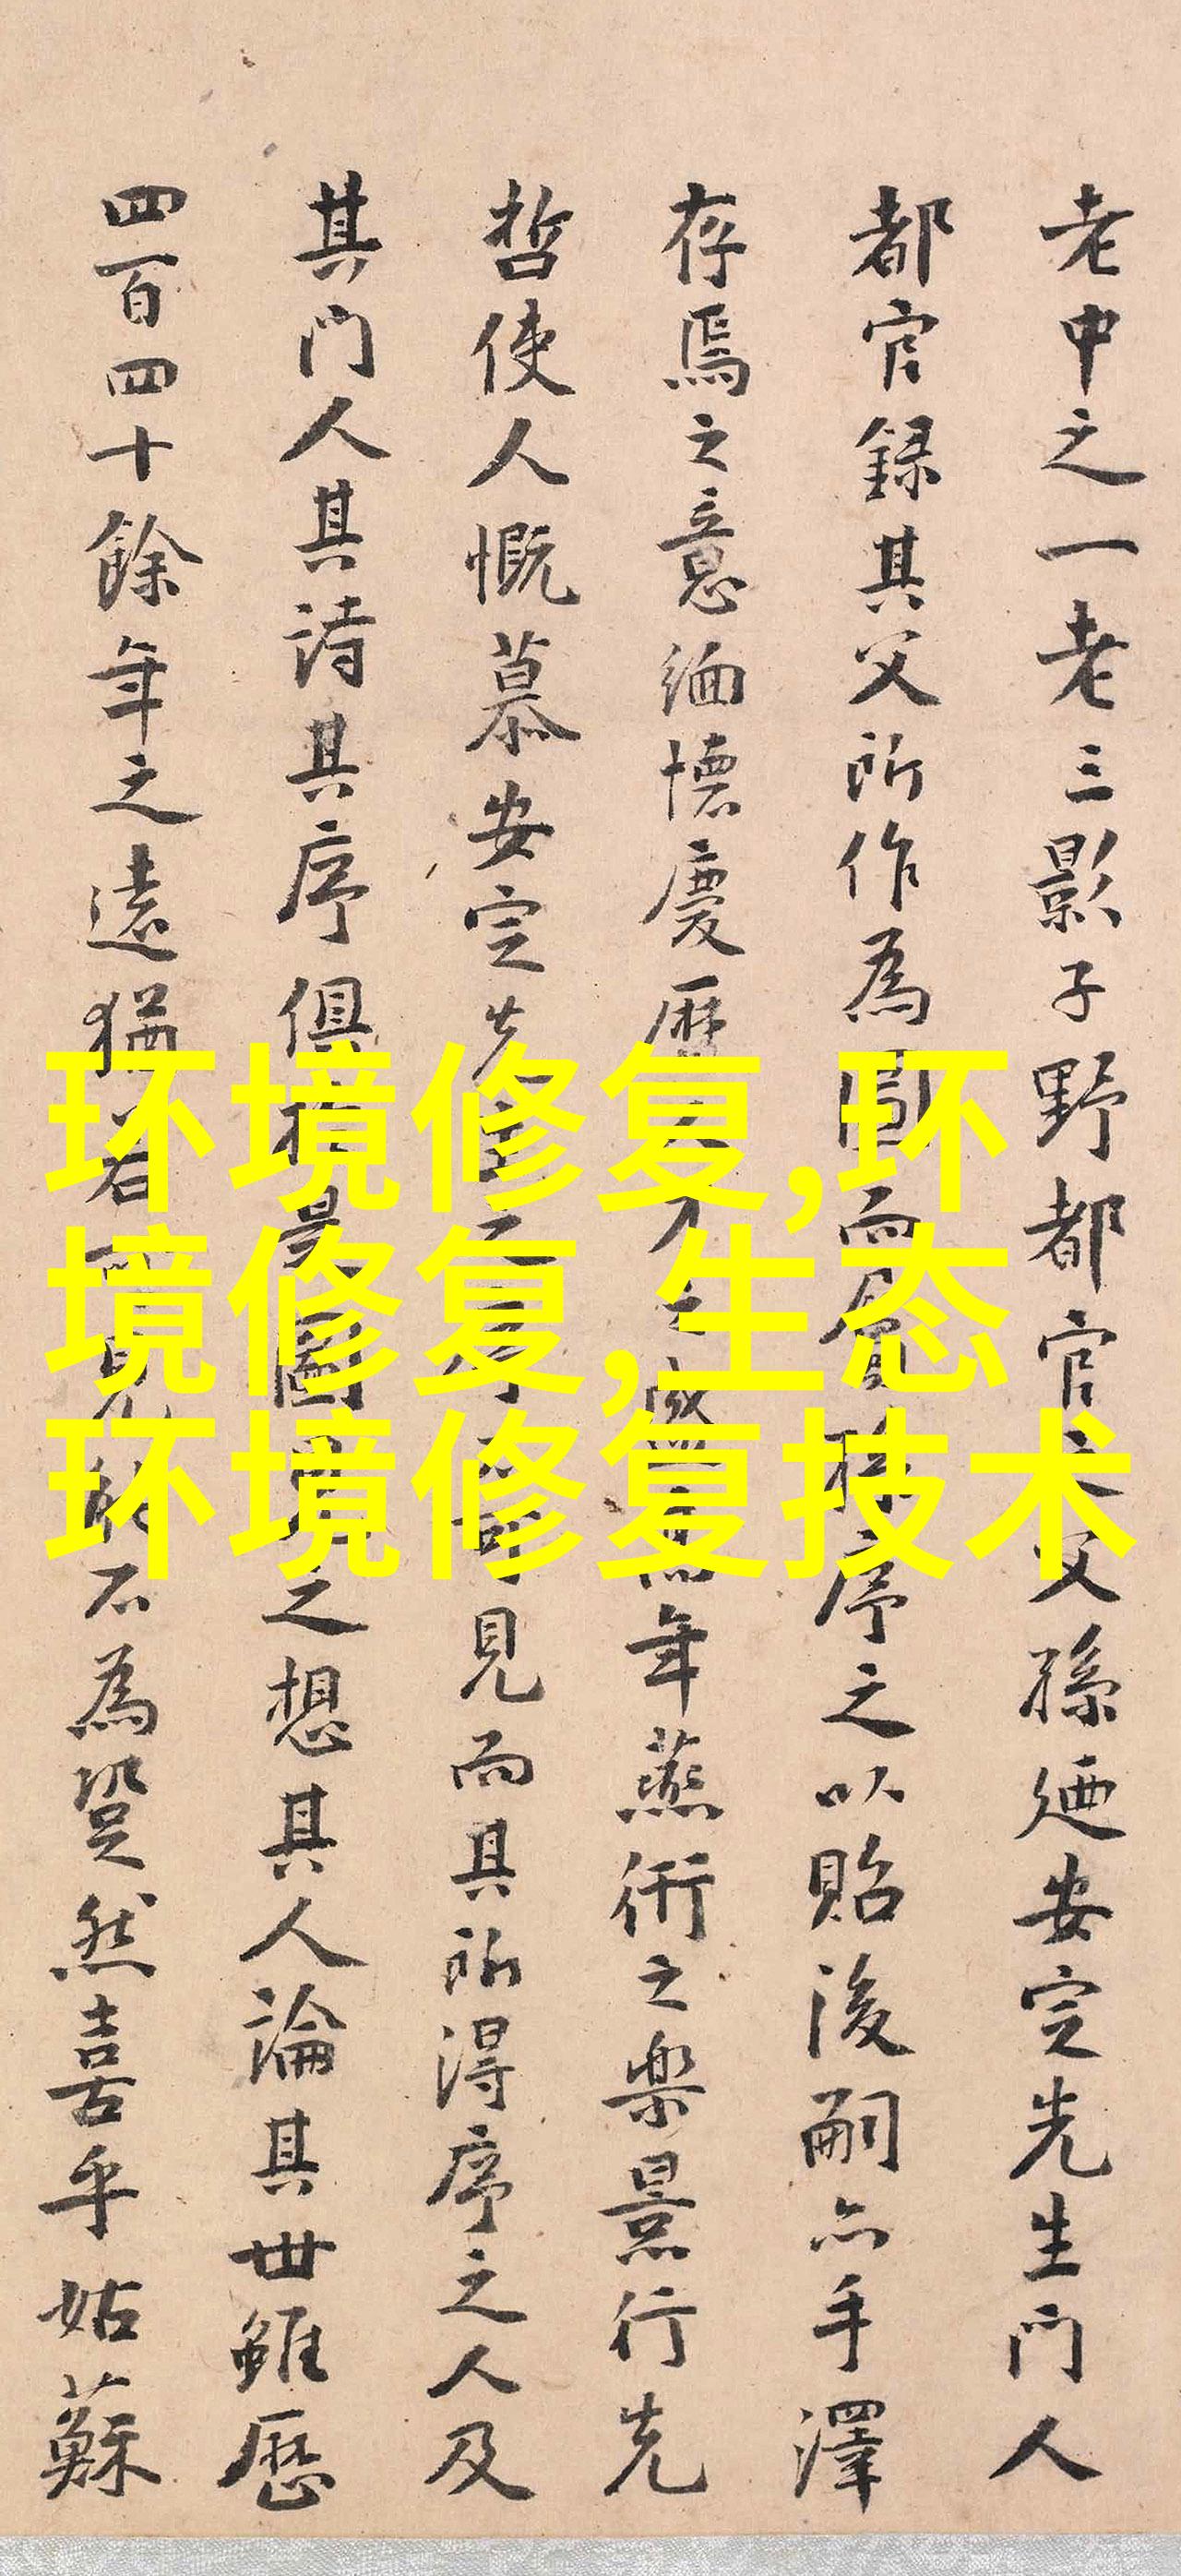 老中之一老三影子野都官之父孫廼安定先生門人
都官録其父所作為圖而貟孫序之以貽後嗣亦手澤
存焉之意緬懷慶曆年蕪衎之樂景行先
哲使人慨慕安定先見而其所得序之人及
其門人其詩其序俱於是圖見之想其人論其世雖歷
四百四十餘年之遠猶若見能不為跫然喜乎姑蘇
环境修复,环
境修复,生态
环境修复技术